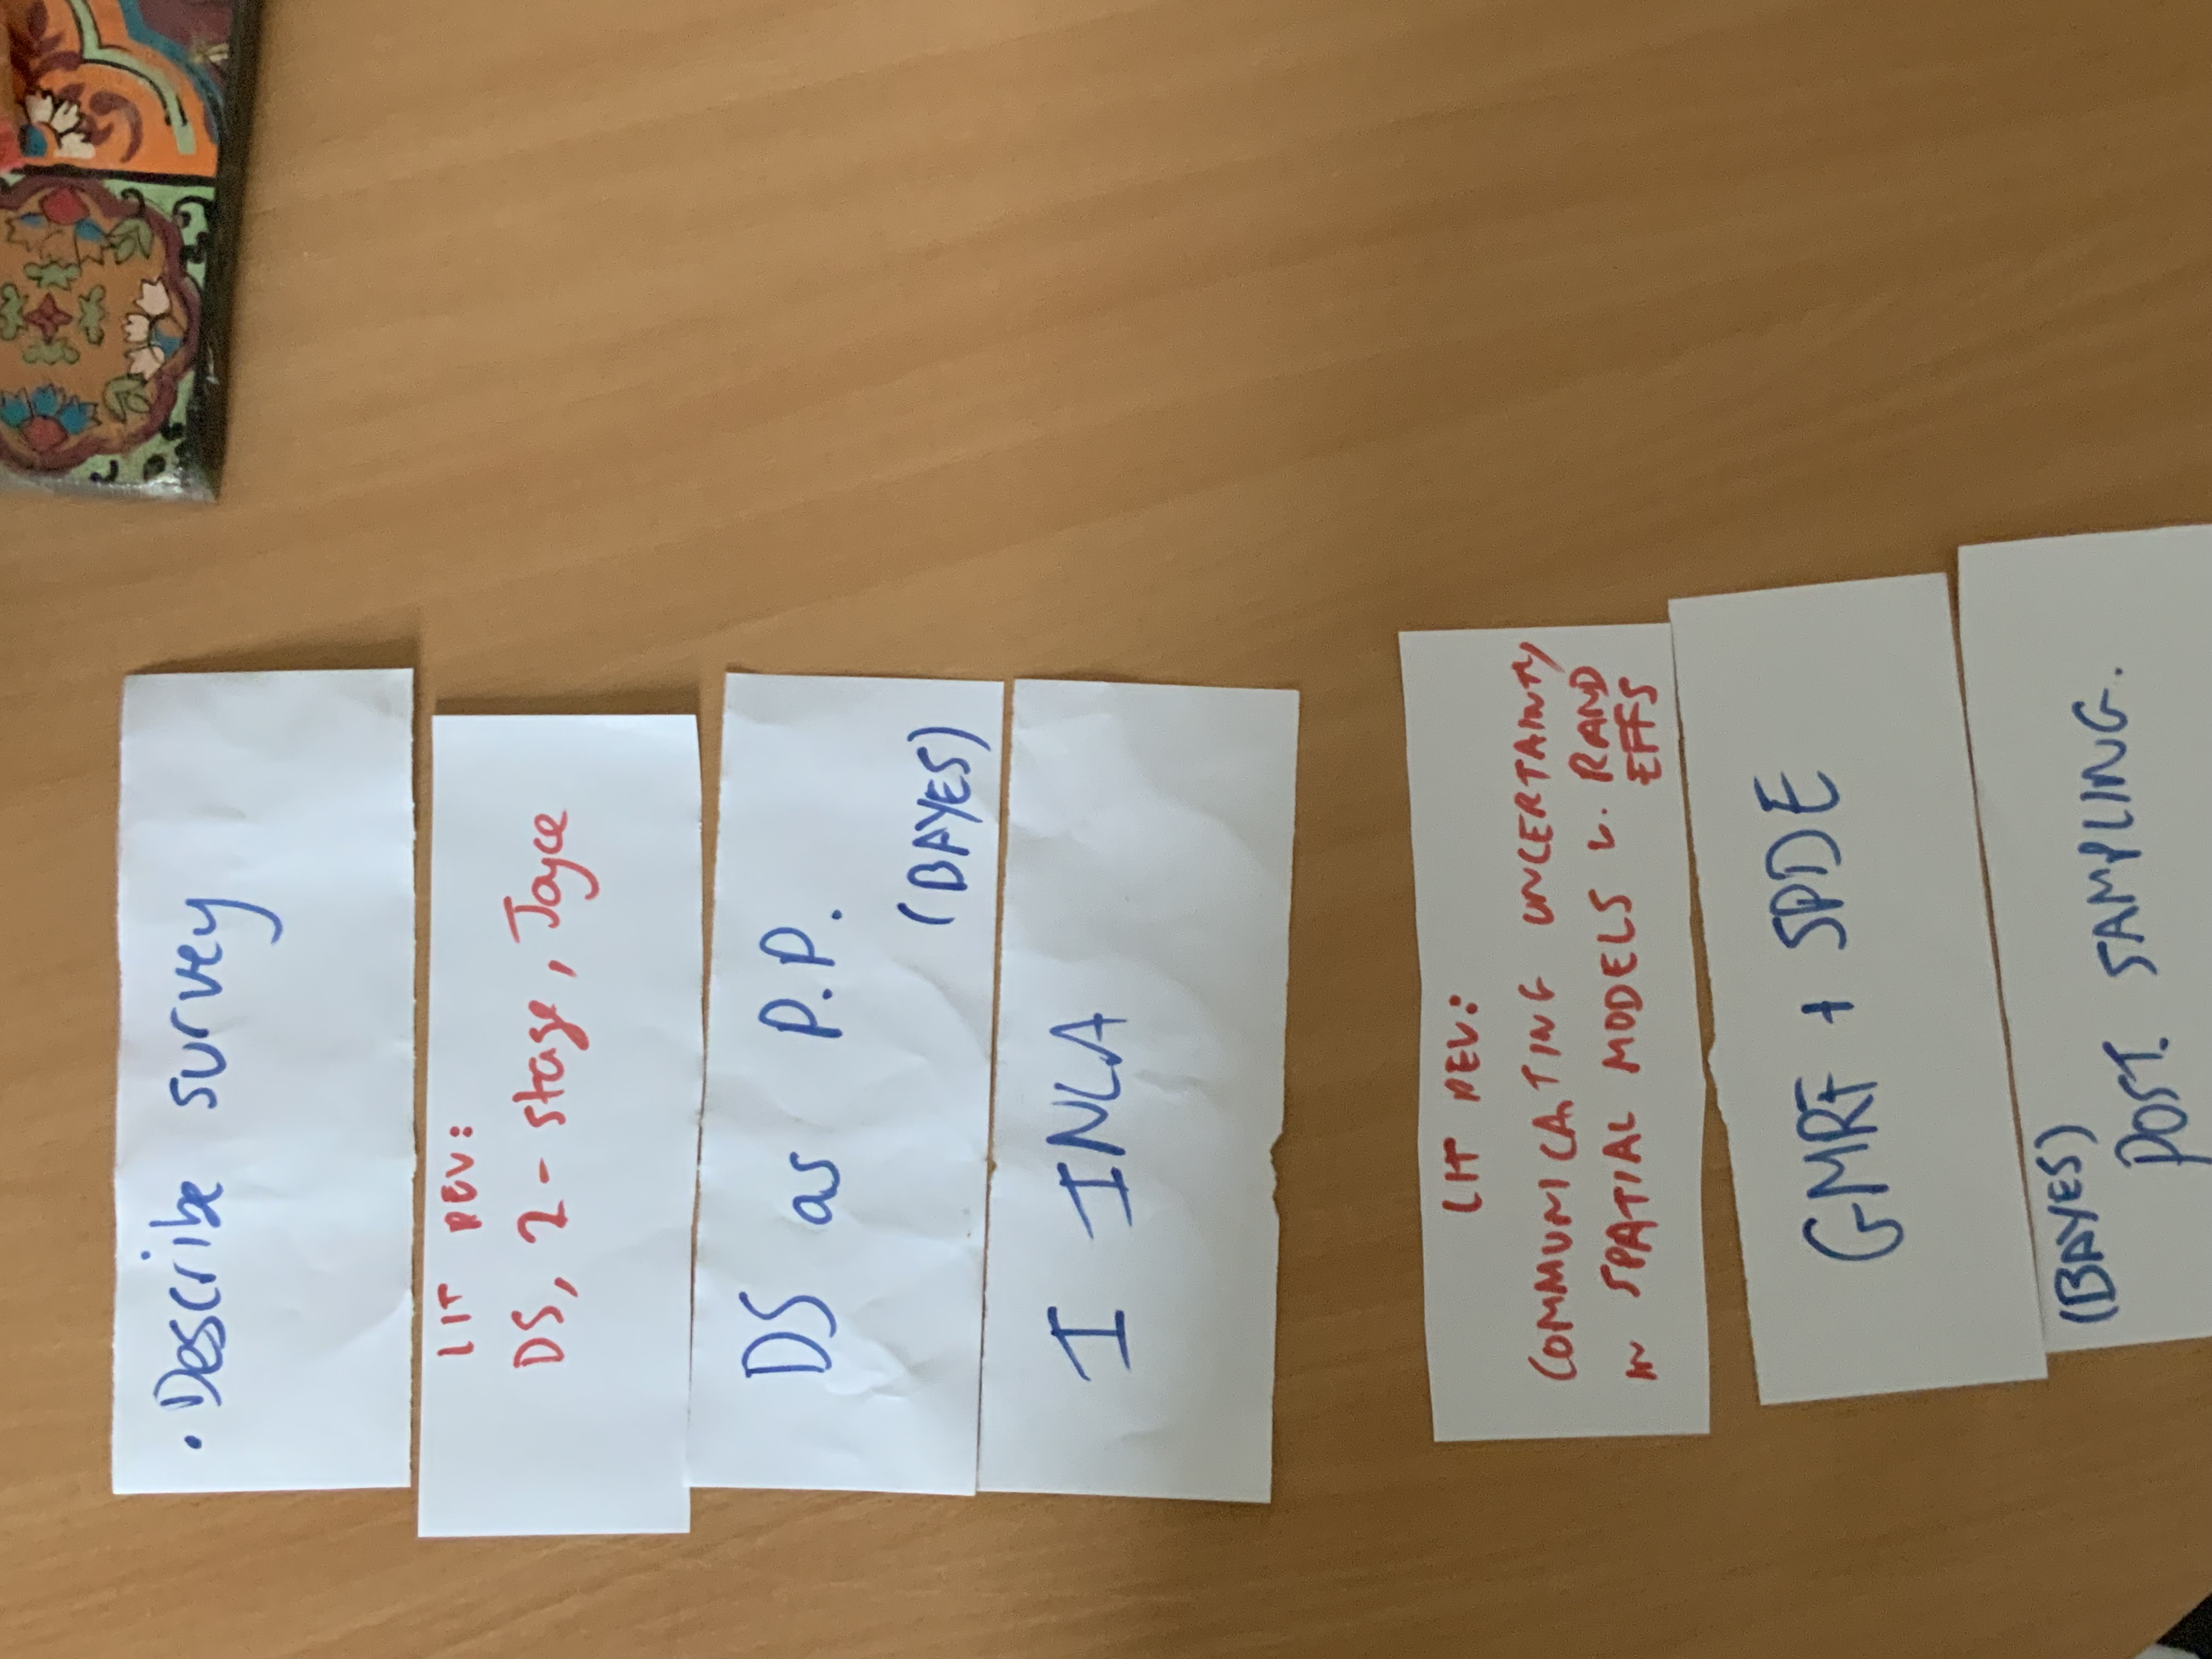 • Describe survey
LIT REV:
DS, 2-stage, Joyce
DS as P.P.
(BAYES)
I INLA
LIT REV:
COMMUNICATING UNCERTAINTY
IN SPATIAL MODELS v. RAND
EFFS
GMRF + SPDE
(BAYES)
POST. SAMPLING.